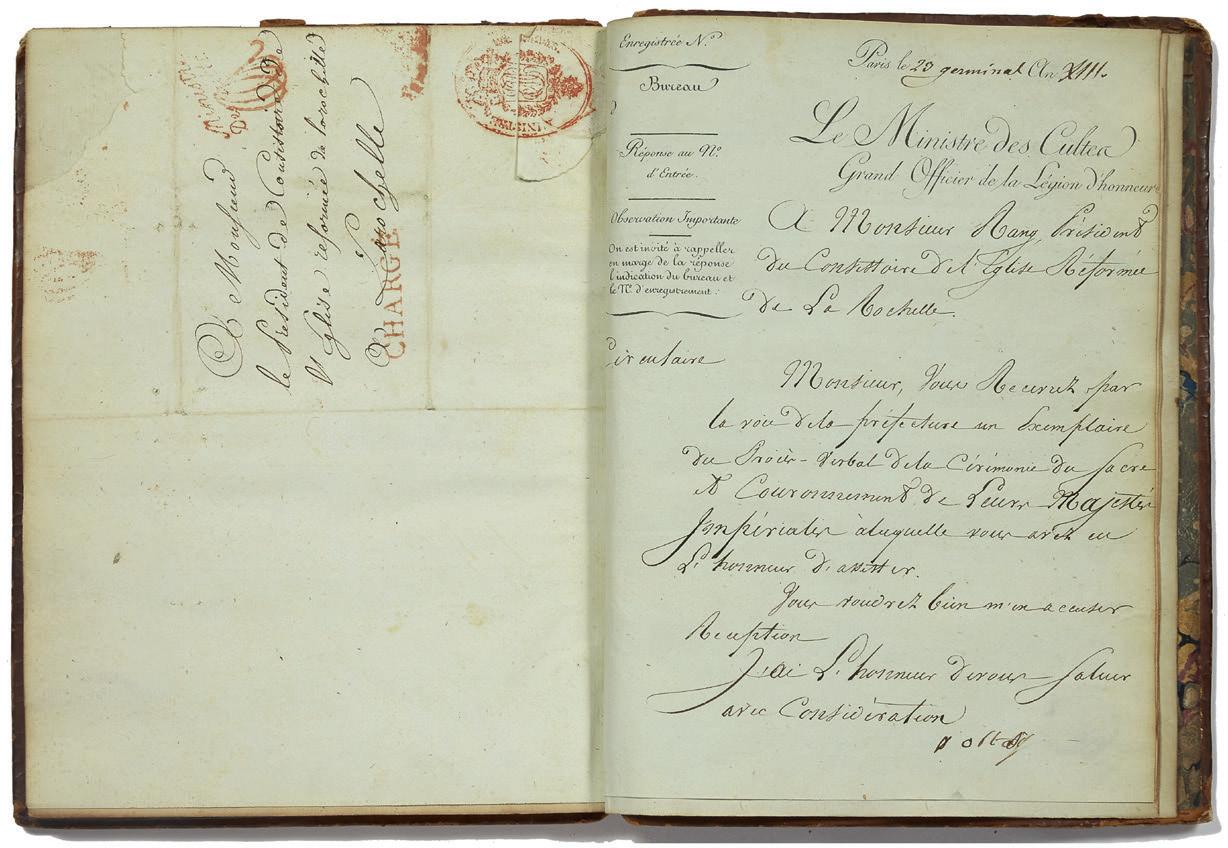 A Monsieur
le President du Consistoire de
l'Eglise reformée de larochelle
a Larochelle
CHARGÉ
MINISTRE
Enregistrée N.º
Bureau
Réponse au N.º
d'Entrée.
Observation Importante
On est invité à rappeller
en marge de la réponse
l'indication du bureau et
le N.º d'enregistrement.
Circulaire
Paris le 23 germinal An XIII.
Le Ministre des Cultes
Grand Officier de la Légion d'honneur
A Monsieur Rang, Président
du Consistoire de l'Eglise Reformée
de La Rochelle.
Monsieur, Vous Recevrez par
la voie de la préfecture un Exemplaire
du Procès-Verbal de la Cérémonie du Sacre
et Couronnement de Leurs Majestés
Impériales à laquelle vous avez eu
L'honneur d'assister.
Vous voudrez bien m'en accuser
Reception
J'ai L'honneur de vous Saluer
avec Considération